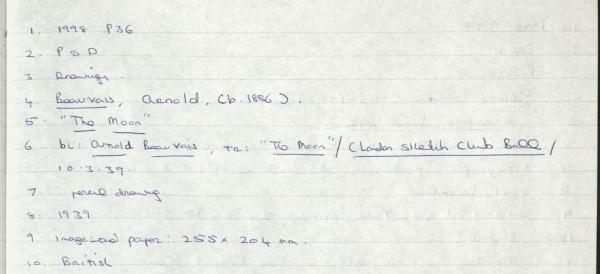 1. 1998 P36
2. P & D
3 Drawign.
4. Beauvais, Arnold, (b. 1886).
5. "The Moon"
6 bl: Arnold Beauvais, tr: "The Moon" / (London Sketch Club Ball /
10.3.39.
7. pencil drawing
8. 1939
9 Image and paper: 255 x 204 mm.
10. British